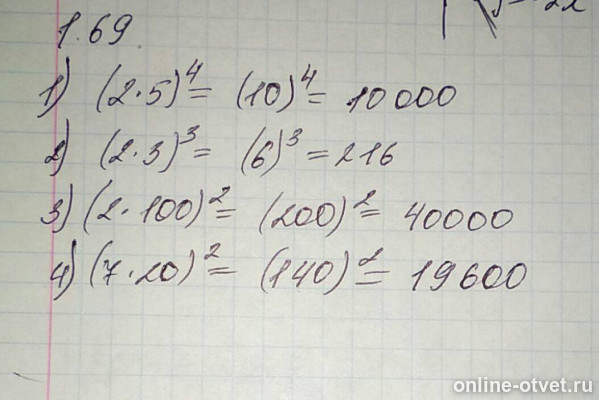 1.69.
1) (2·5)⁴ = (10)⁴ = 10000
2) (2·3)³ = (6)³ = 216
3) (2·100)² = (200)² = 40000
4) (7·20)² = (140)² = 19600
online-otvet.ru